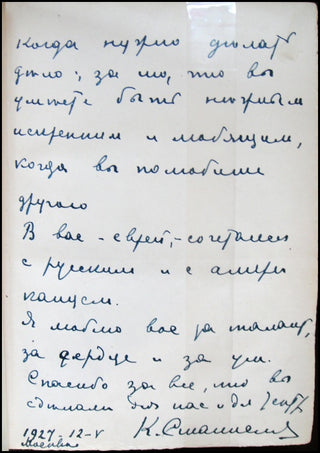 когда нужно дѣлать
дѣло; за то, что вы
умѣете быть нѣжным
искренним и любящим,
когда вы полюбите
другого
В вас – еврей, – сочетался
с русским и с амери
канцем.
Я люблю вас за талант,
за сердце и за ум.
Спасибо за все, что вы
сдѣлали для нас и для театр
К. Станиславск
1927–12–V
Москва